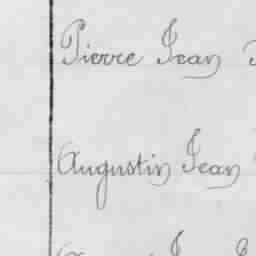 Pierre Jean
Augustin Jean